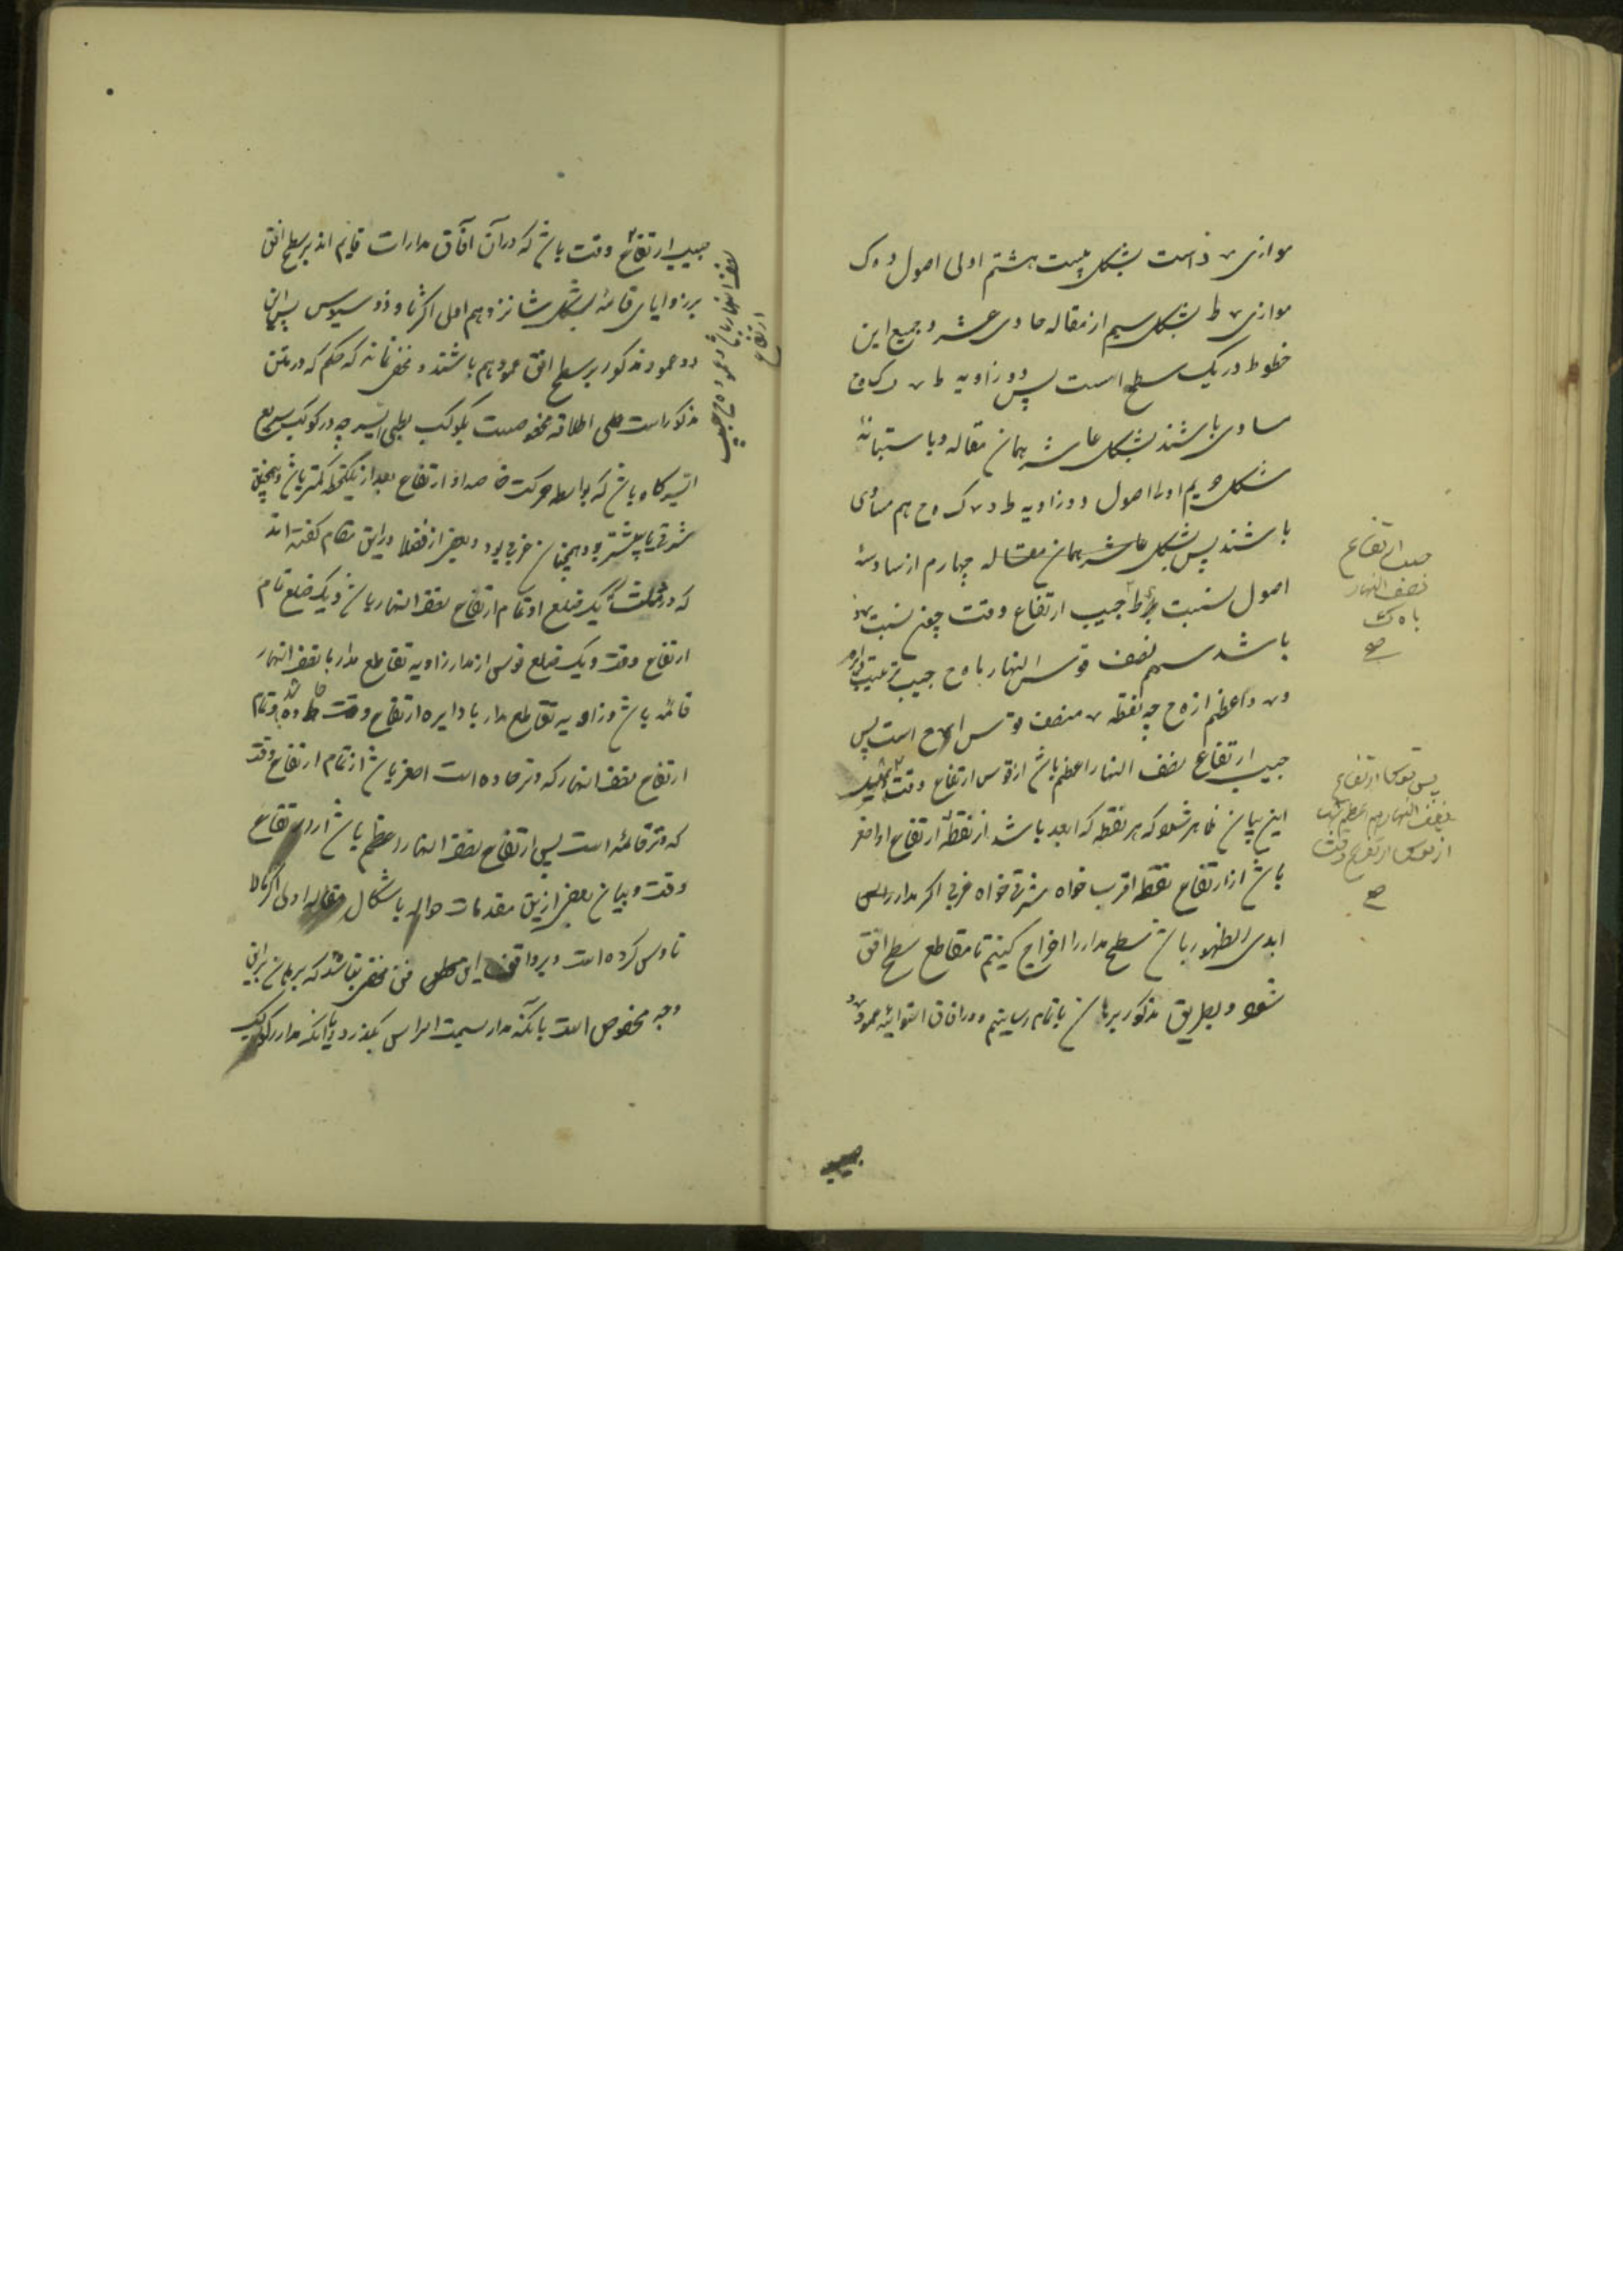 موازی ر د است بشکل بیست هشتم اولی اصول و ه ک
موازی ر ط بشکل سیم از مقاله حادی عشر و جمیع این
خطوط در یک سطح است پس دو زاویه ط ر د ک ه ح
مساوی باشند بشکل عاشر همان مقاله و باستبانهٔ
شکل اولی اصول دو زاویه ط د ر ک ه ح هم مساوی
باشند پس بشکل مقاله چهارم از سادسهٔ
اصول نسبت ر ط جیب ارتفاع وقت چون نسبت ر د
باشد سهم نصف قوس النهار با ه ح جیب ترتیب
و ر د اعظم از ه ح چه نقطه ر منصف قوس است پس
جیب ارتفاع نصف النهار اعظم باشد از قوس ارتفاع وقت
این بیان ظاهر شود که هر نقطه که ابعد باشد از نقطهٔ ارتفاع او اصغر
باشد از ارتفاع نقطه اقرب خواه شرقی خواه غربی اگر مدار
ابدی الظهور باشد سطح مدار را اخراج کنیم تا مقاطع سطح افق
شود و بطریق مذکور برهان باتمام رسانیم و در افاق استوائیه عمود ر د
جیب ارتفاع
نصف النهار
با ه ک
صح
پس قوس ارتفاع
نصف النهار هم اعظم باشد
از قوس ارتفاع وقت
صح
جیب
جیب ارتفاع وقت باشد که در آن آفاق مدارات قایم اند بر سطح افق
بر زوایای قائمه بشکل شانزدهم اولی اکر ثاوذوسیوس پس این
دو عمود مذکور بر سطح افق عمود هم باشند و مخفی نماند که حکم که در متن
مذکور است علی اطلاقه مخصوصست بکوکب بطیء السیر چه در کوکب سریع
السیر گاه باشد که بواسطه حرکت خاصه او ارتفاع بعد از یکلحظه کمتر باشد و همچنین
شرقی یا بیشتر بود همچنان غربی بود و بعضی از فضلا در این مقام گفته اند
که در مثلث یک ضلع او تمام ارتفاع نصف النهار باشد و یک ضلع تمام
ارتفاع وقت و یک ضلع قوسی از مدار زاویه تقاطع مدار با نصف النهار
قائمه باشد و زاویه تقاطع مدار با دایره ارتفاع وقت حاده و تمام
ارتفاع نصف النهار که وتر حاده است اصغر باشد از تمام ارتفاع وقت
که وتر قائمه است پس ارتفاع نصف النهار اعظم باشد از ارتفاع
وقت و بیان بعضی ازین مقدمات حواله باشکال مقاله اولی اکر مالا
ناوس کرده است و بر واقف این فن مخفی نباشد که برهان برین
وجه مخصوص است بآنکه مدار بسمت الراس بگذرد یا آنکه مدار کوکب
نصف النهار باشد و عمود ه ح جیب
ارتفاع